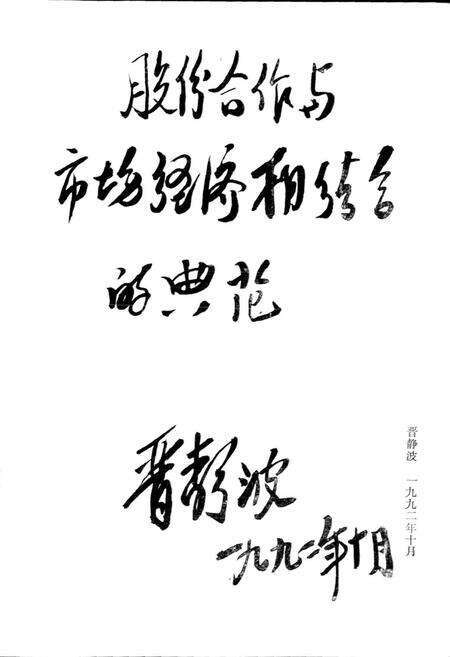 股份合作与
市场经济相结合
的典范
晋静波
一九九二年十月
晋静波 一九九二年十月